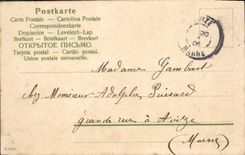 Postkarte
Carte Postale - Cartolina Postale
Correspondenzkarte
Dopisnice - Levelező-Lap
Brefkort - Briefkaart - Brevkort
ОТКРЫТОЕ ПИСЬМО.
Tarjeta postal - Cartão postal.
Union postale universelle.
AVIZE
20
MARNE
Madame Gambart
chez Monsieur Adolphe Puisard
grande rue à Avize
(Marne)